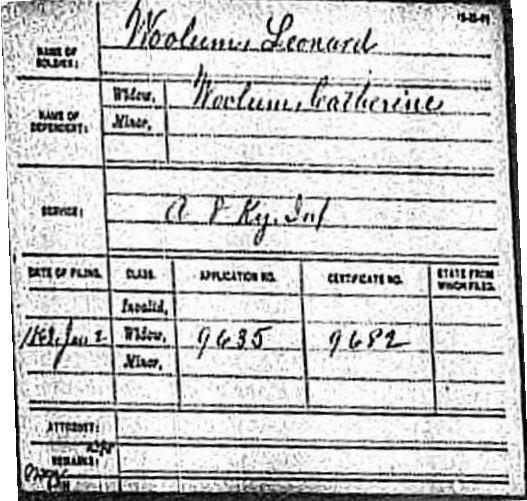 NAME OF SOLDIER: Woolum, Leonard
NAME OF DEPENDENT: Widow, Woolum, Catherine
Minor,
SERVICE: A 8 Ky. Inf
DATE OF FILING. CLASS. APPLICATION NO. CERTIFICATE NO. STATE FROM WHICH FILED.
Invalid,
Jan 2 Widow, 9635 9682
Minor,
ATTORNEY:
REMARKS: